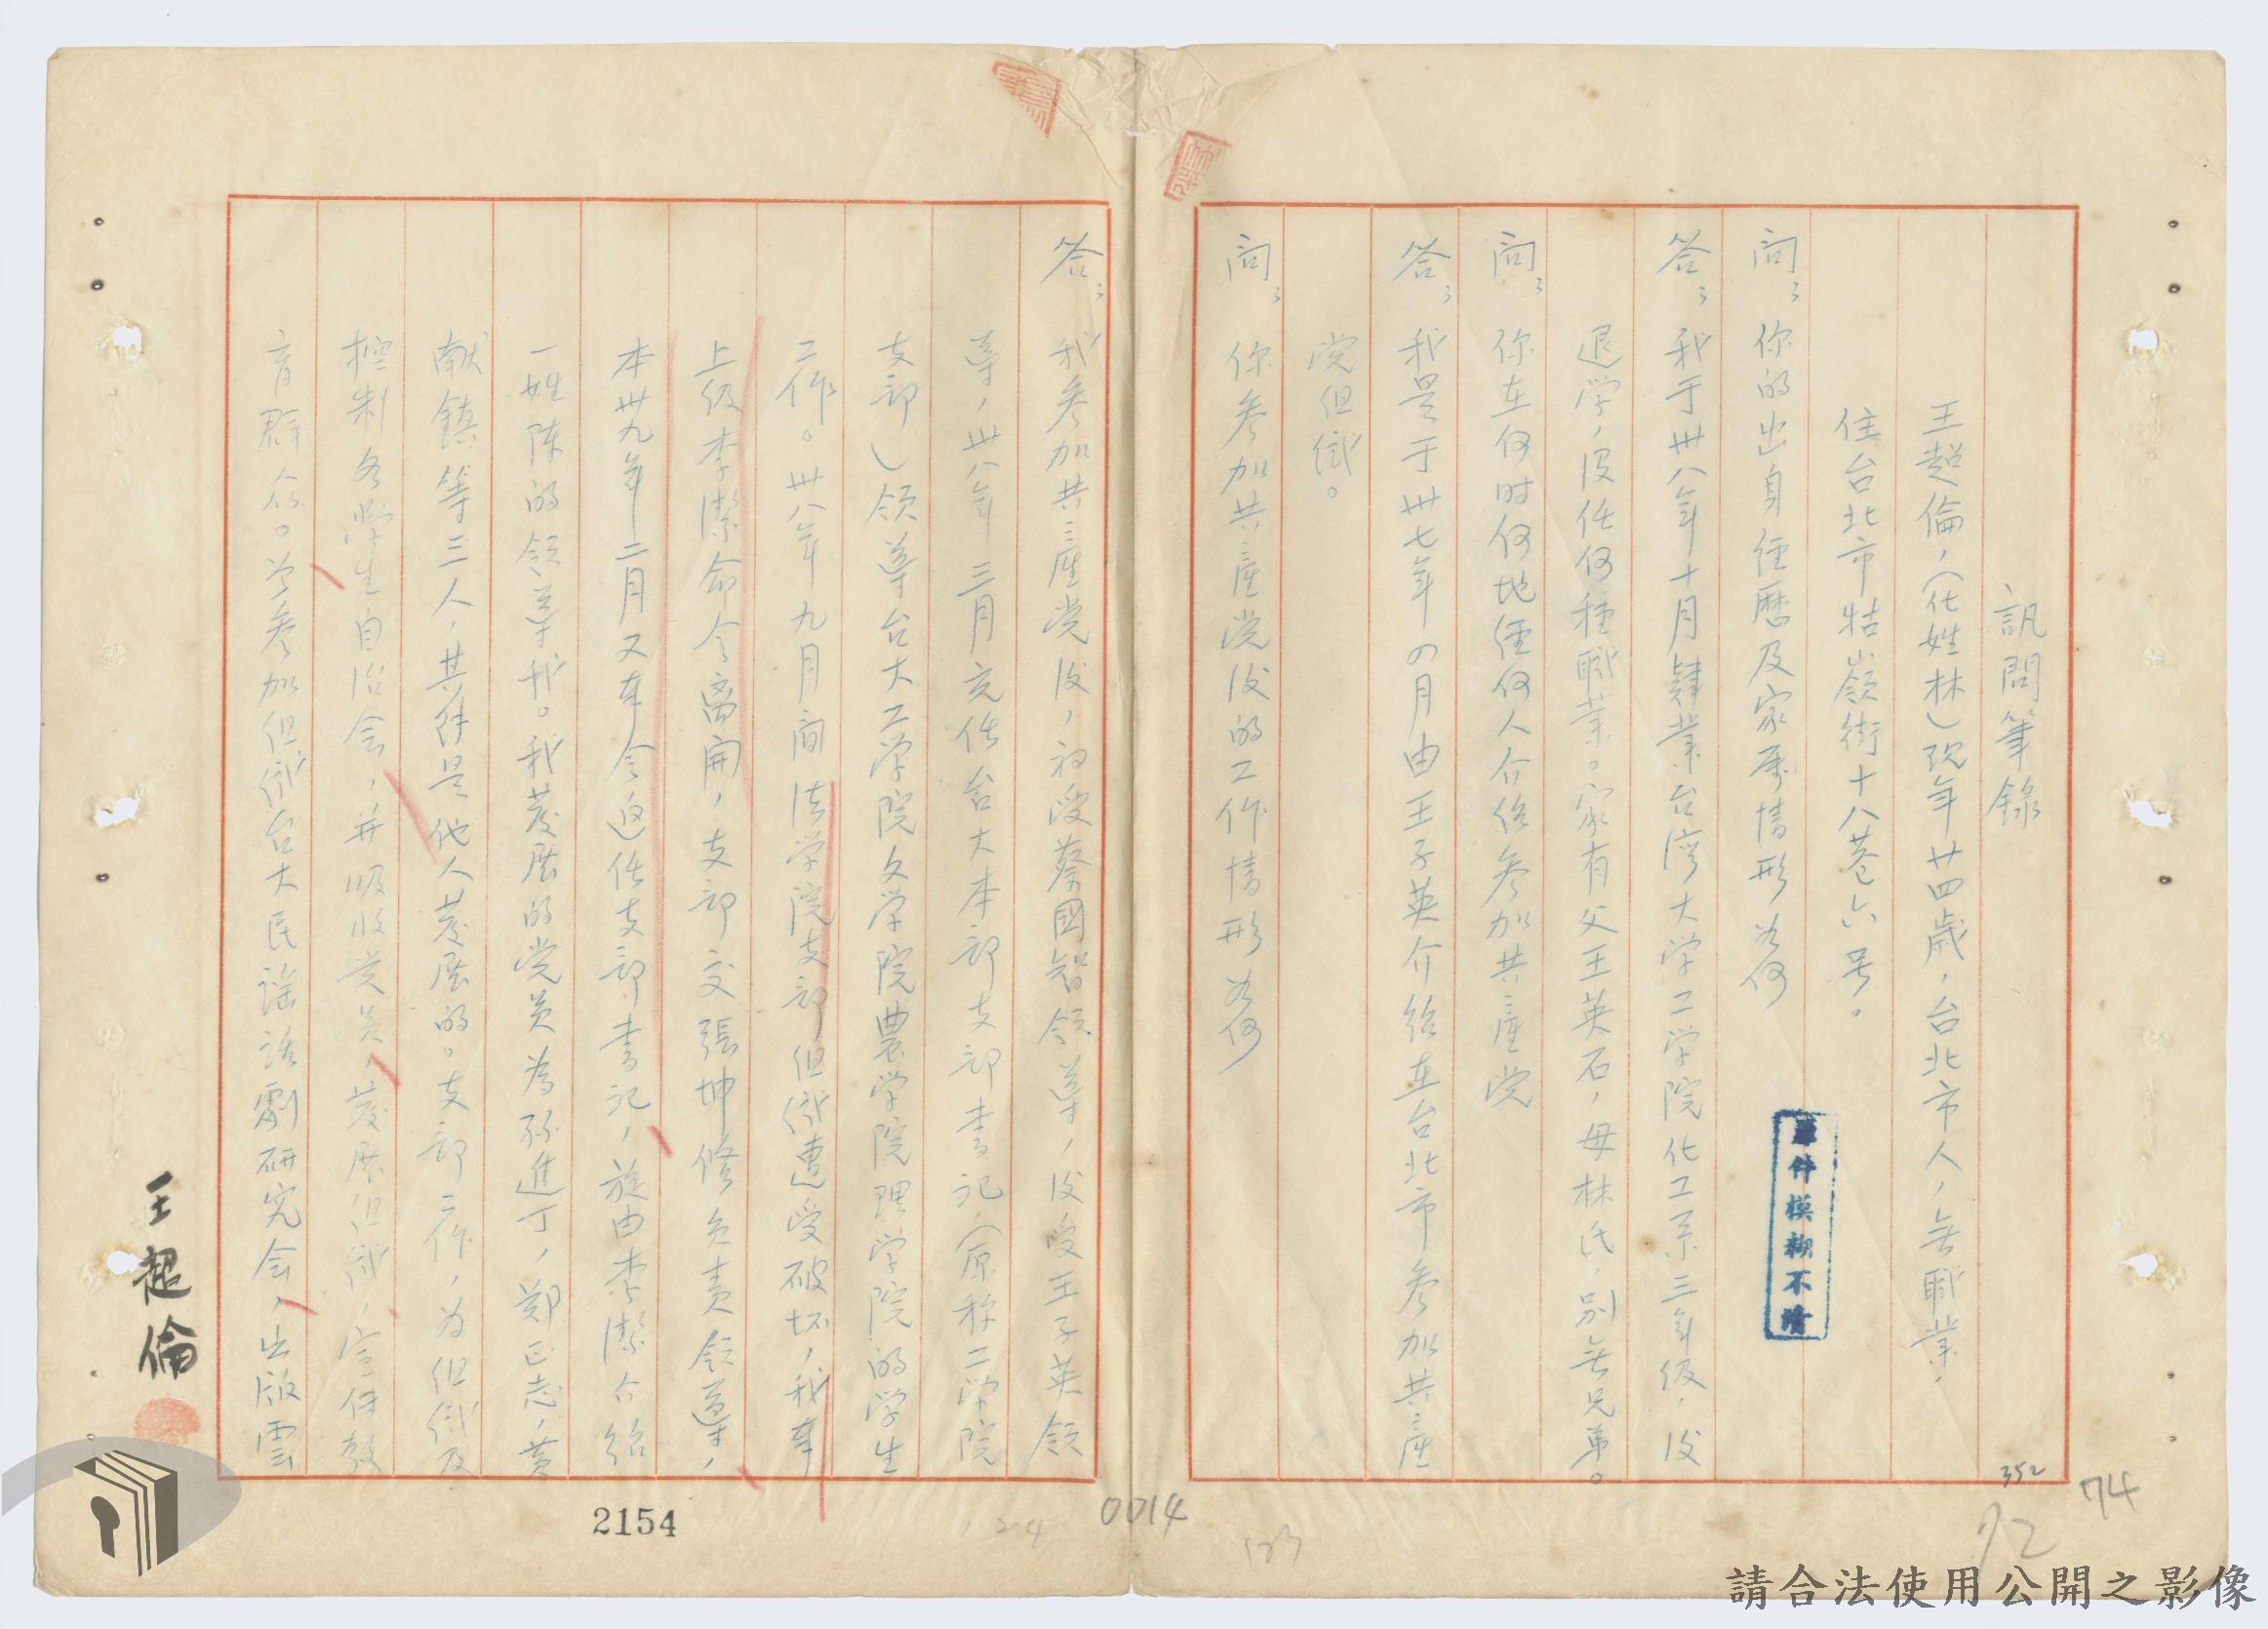 訊問筆錄
王超倫，（化姓林）現年廿四歲，台北市人，無職業，
住台北市牯嶺街十八巷六号。
問：你的出身经歷及家属情形为何
答：我于卅八年十月肄業台湾大学工学院化工系三年级，後
退学，没任何種職業。家有父王英石，母林氏，别無兄弟。
問：你在何时何地经何人介绍参加共產党
答：我是于卅七年の月由王子英介绍在台北市参加共產
党组織。
問：你参加共產党後的工作情形为何
答：我参加共產党後，初受蔡國智领導，後受王子英领
導，卅八年三月充任台大本部支部書記（原称工学院
支部）领導台大工学院文学院農学院理学院的学生
工作。卅八年九月间法学院支部组織遭受破坏，我奉
上级李潔命令离開，支部交張坤修负责领導，
本卅九年二月又奉令返任支部書記，旋由李潔介绍
一姓陈的领導我。我發展的党员為孫進丁，鄭正志，黄
献鎮等三人，其餘是他人發展的。支部工作，为组織及
控制各学生自治会，并吸收党员，發展组織，宣传教
育群众。曾参加组織台大民謡話劇研究会，出版雲
王超倫
原件模糊不清
352
74
72
0014
123
124
2154
請合法使用公開之影像